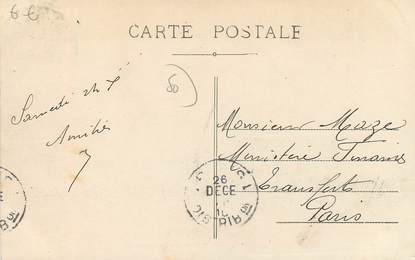 6-6
CARTE POSTALE
50
Samedi 24
Amitiés
Monsieur Maze
Ministère Finances
Transferts
Paris
26
DECE